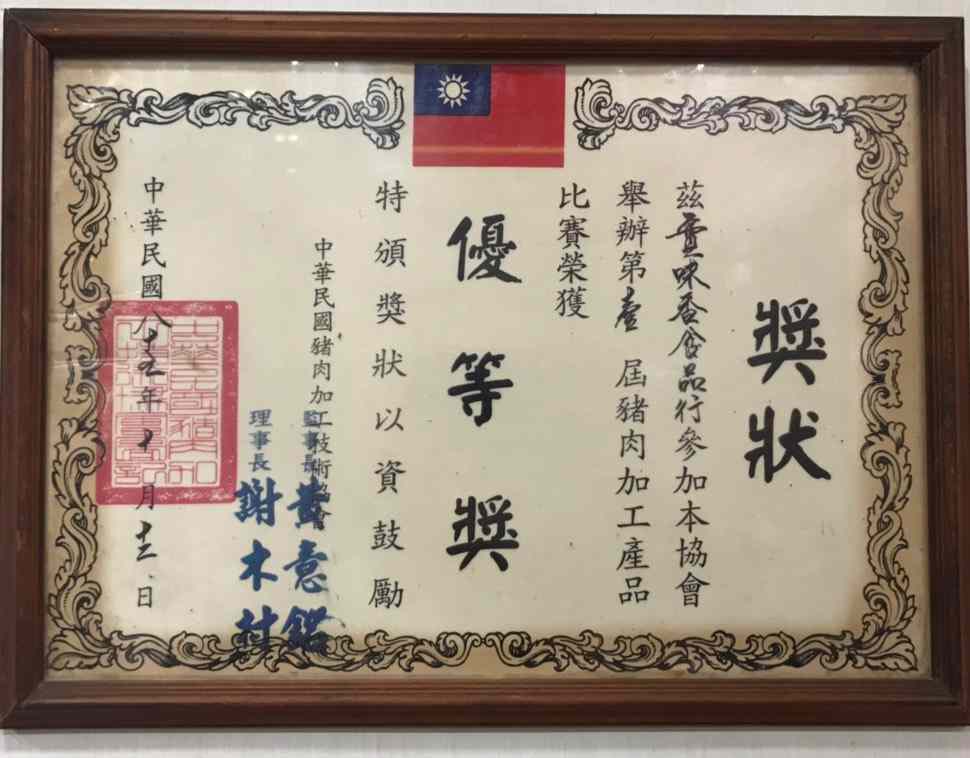 獎狀
茲壹味香食品行參加本協會
舉辦第壹屆豬肉加工產品
比賽榮獲
優等獎
特頒獎狀以資鼓勵
中華民國豬肉加工技術協會
監事長 黃意鑑
理事長 謝木村
中華民國八十五年十月十二日